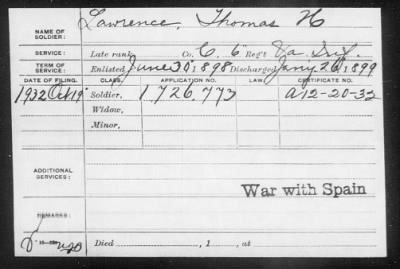 NAME OF SOLDIER: Lawrence, Thomas H
SERVICE: Late rank Co. C, 6 Reg't Va Inf.
TERM OF SERVICE: Enlisted June 30, 1898 Discharged Jany. 26, 1899
DATE OF FILING. CLASS. APPLICATION NO. LAW. CERTIFICATE NO.
1932 Oct 19 Soldier, 1.726.773 A 12-20-32
Widow,
Minor,
ADDITIONAL SERVICES:
War with Spain
REMARKS:
Died , 1 , at